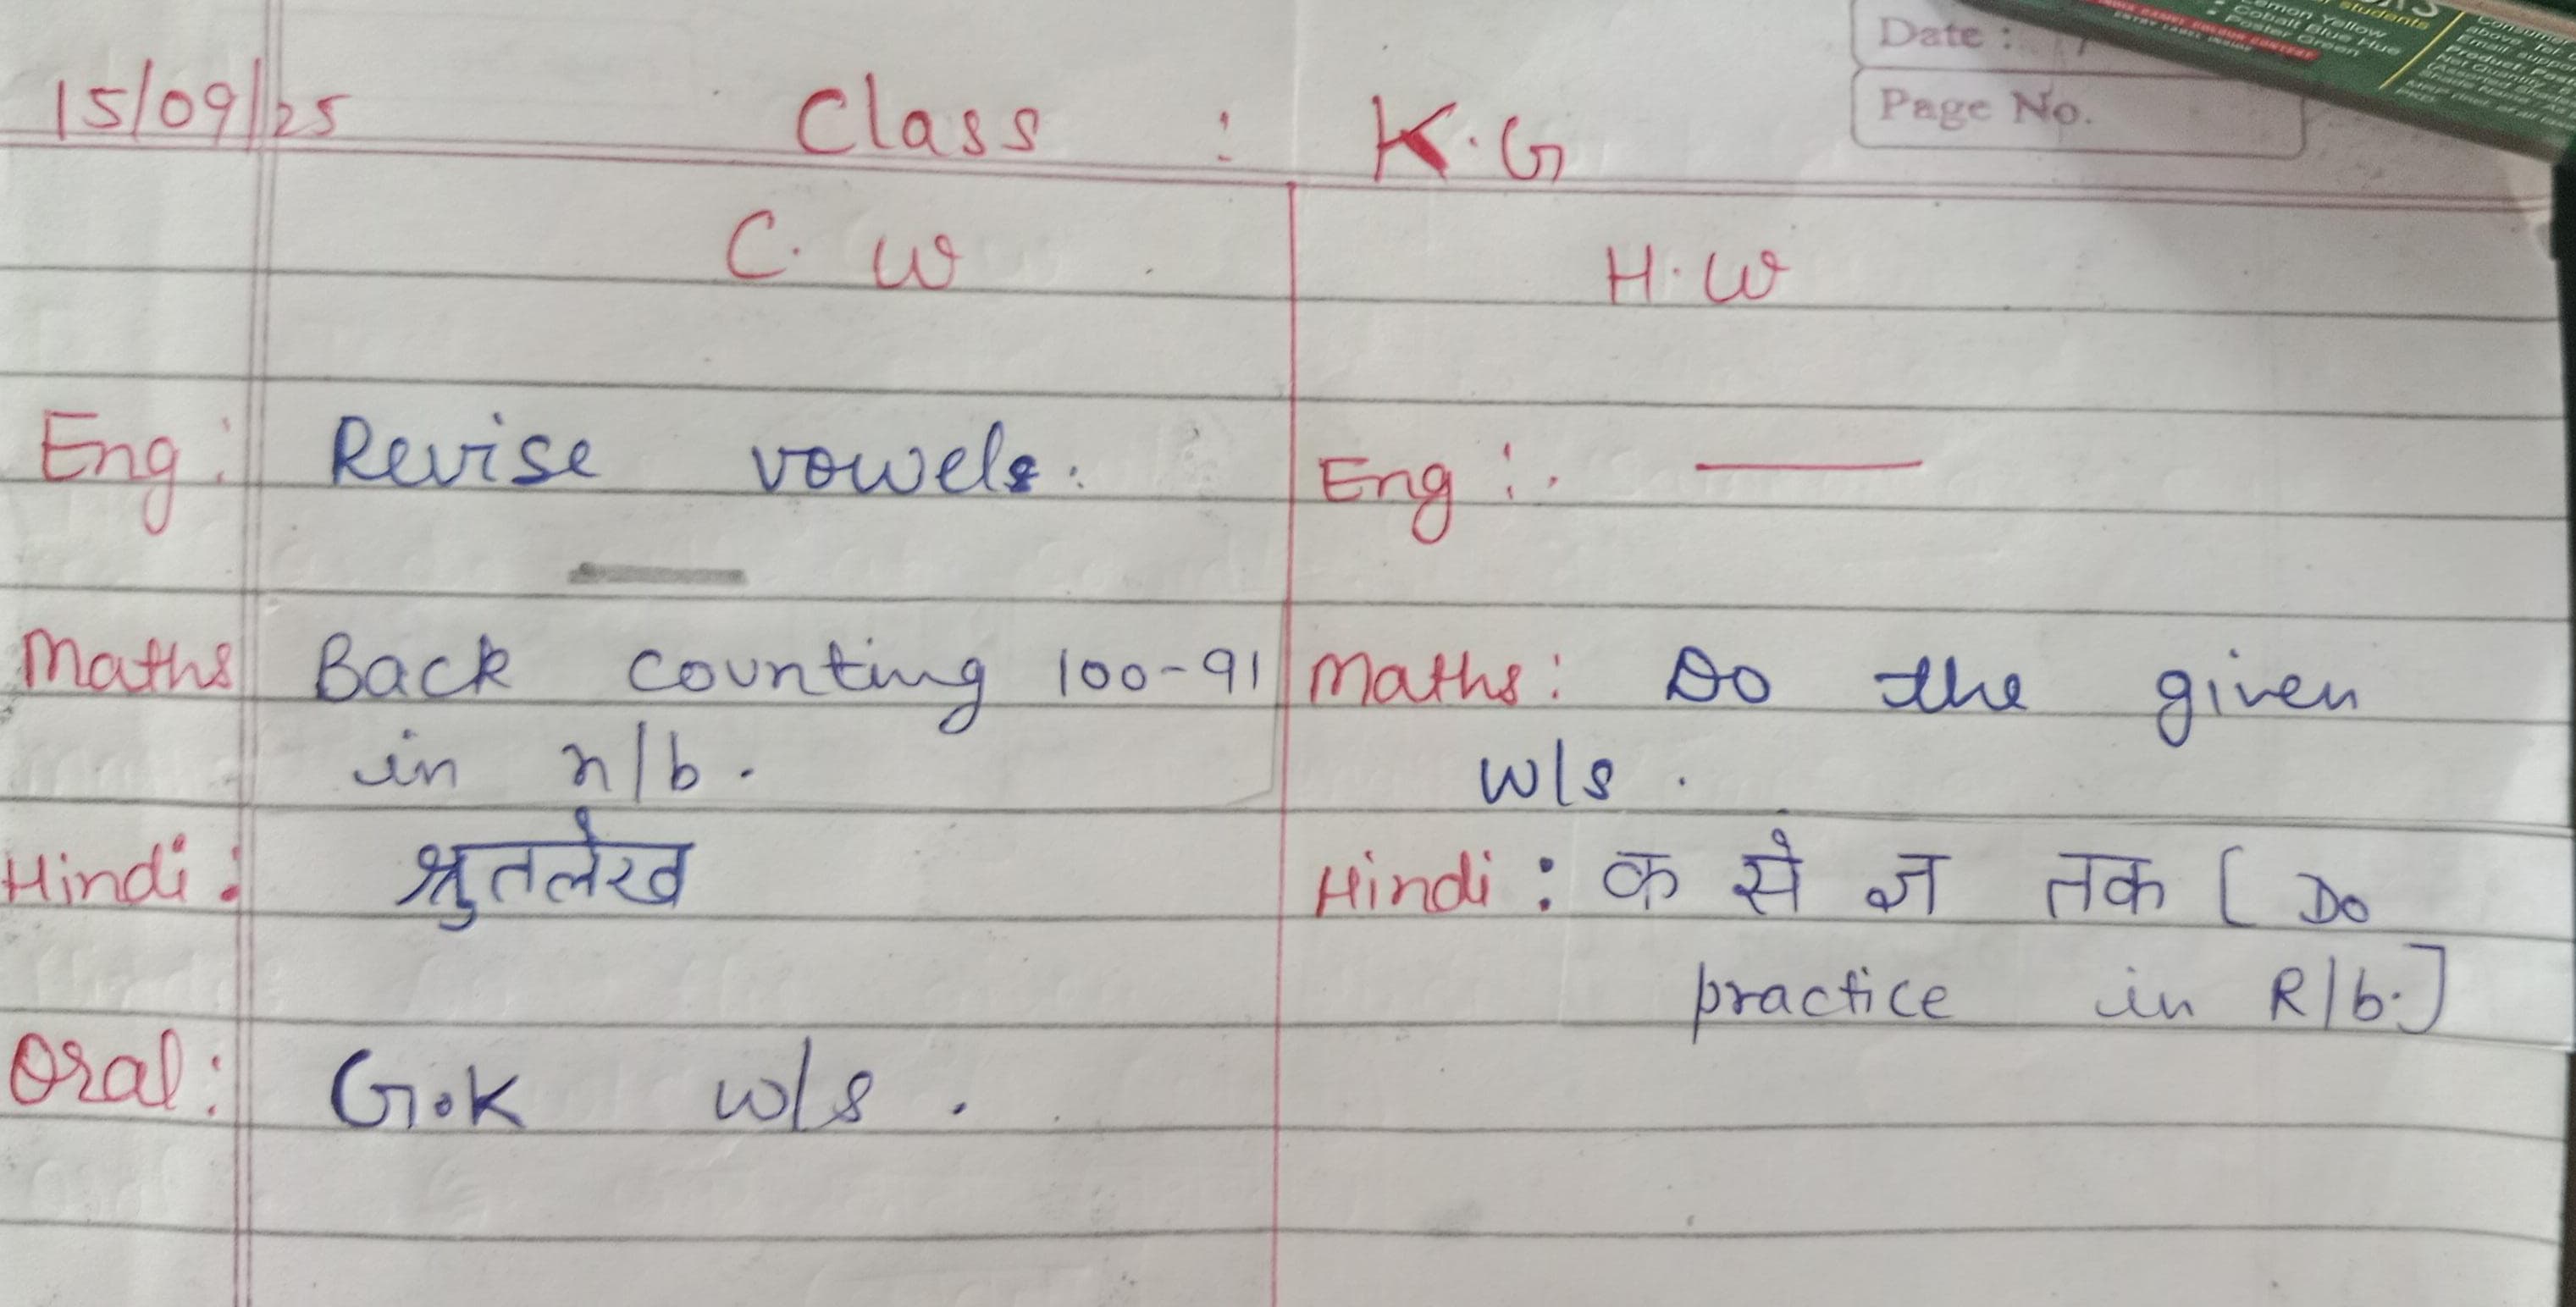 Date :
Page No.
15/09/25 Class : K.G
C.W H.W
Eng: Revise vowels. Eng :. ——
Maths Back counting 100-91 Maths: Do the given
in n/b. w/s.
Hindi: श्रुतलेख Hindi : क से ज तक [Do
practice in R/b.]
Oral: G.K w/s.
students
Lemon Yellow
Cobalt Blue Hue
Poster Green